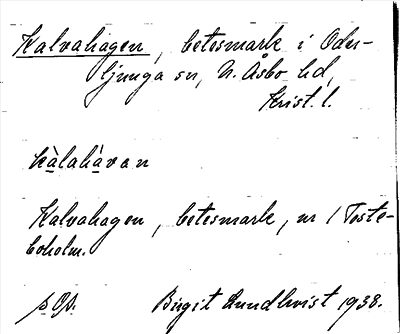 Kalvahagen, betesmark i Oder-
ljunga sn, N. Åsbo hd,
Krist. l.
kàlahàvan
Kalvahagen, betesmark, nr 1 Toste-
boholm.
Birgit Lundkvist 1938.